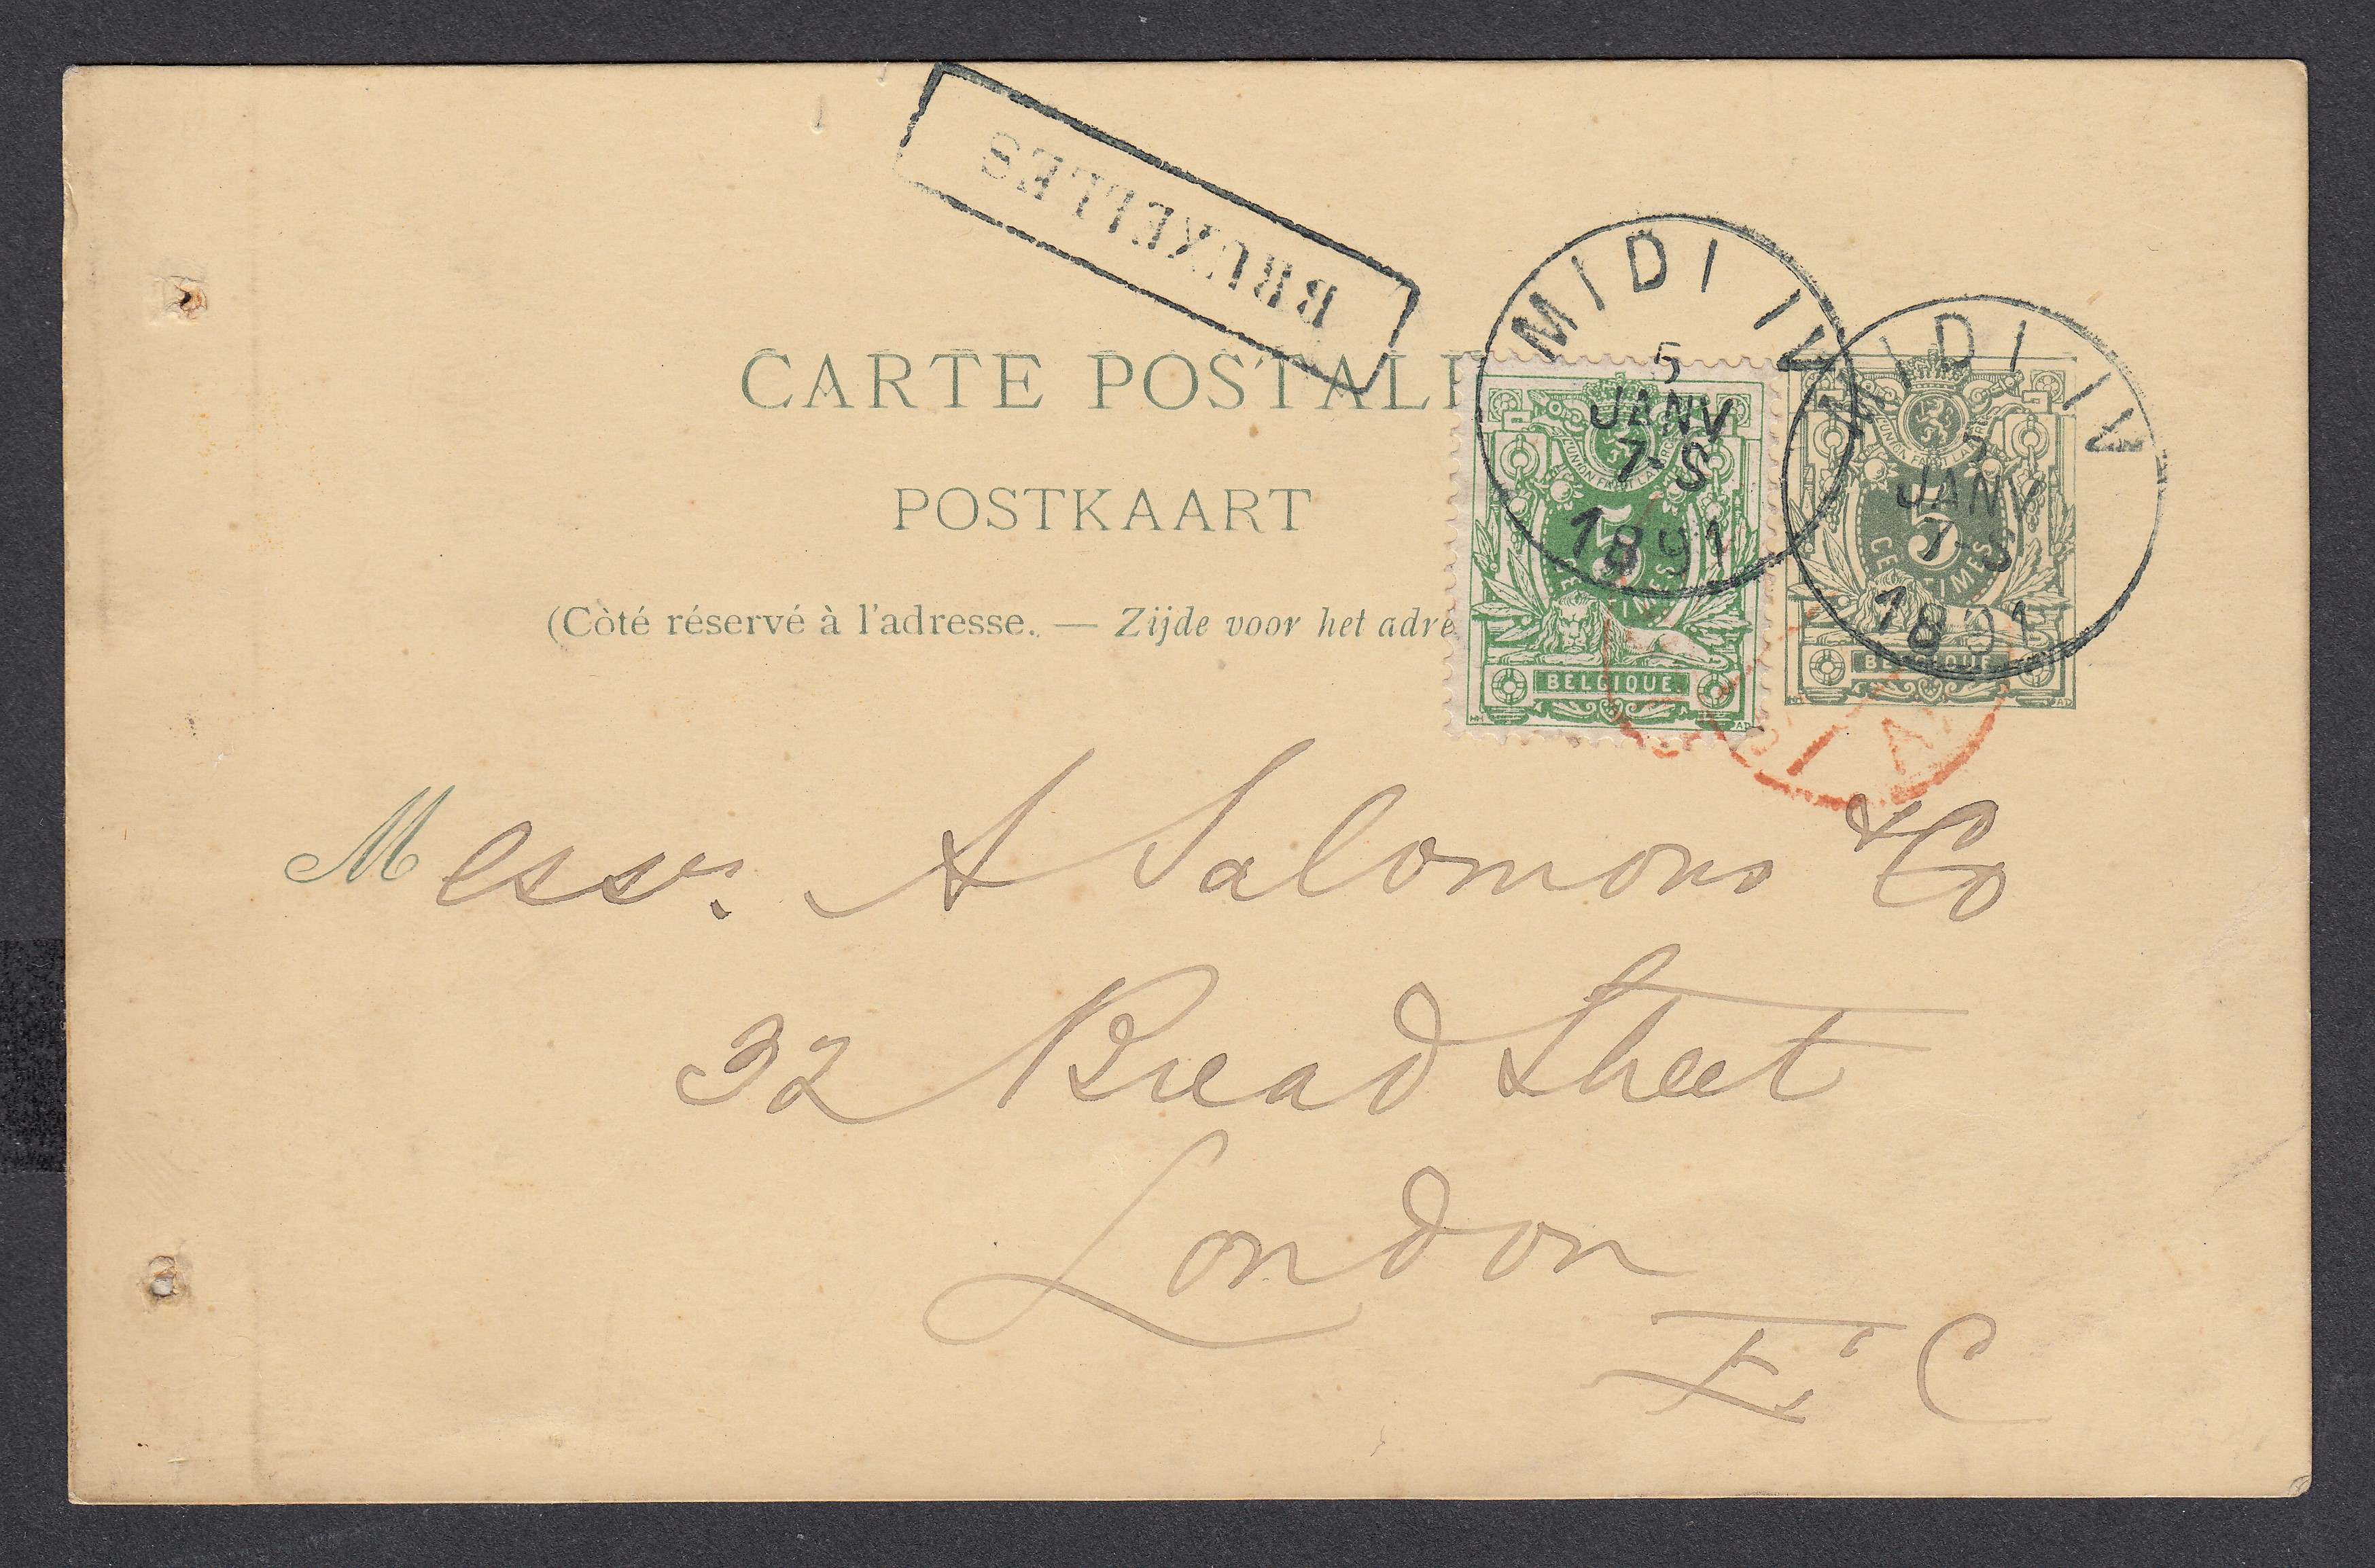 BRUXELLES
MIDI IV
5
JANV
7-S
1891
MIDI IV
5
JANV
7-S
1891
CARTE POSTALE
POSTKAART
(Côté réservé à l'adresse. — Zijde voor het adre
L'UNION FAIT LA FORCE
5
CENTIMES
BELGIQUE
L'UNION FAIT LA FORCE
5
CENTIMES
BELGIQUE
Messrs. A Salomons & Co
32 Bread Street
London
E. C